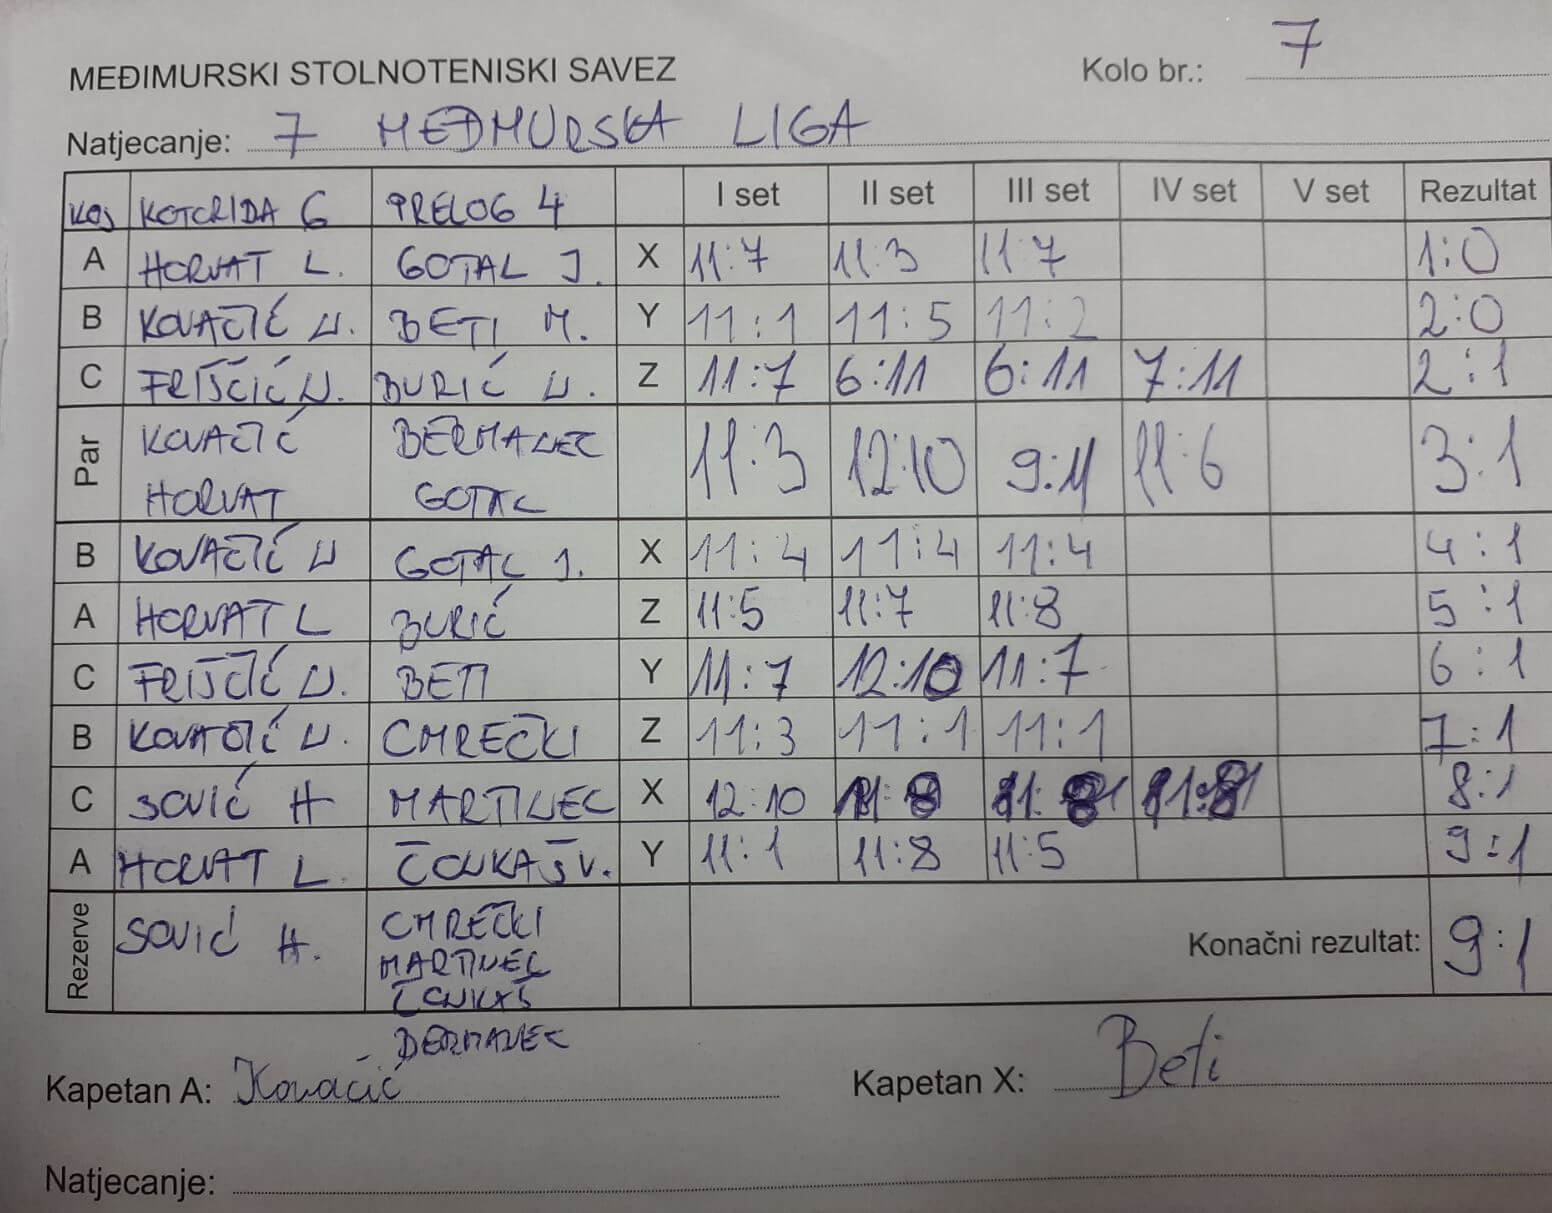 MEĐIMURSKI STOLNOTENISKI SAVEZ Kolo br.: 7
Natjecanje: 7 MEĐMURSKA LIGA
KOTORIDA 6 PRELOG 4 I set II set III set IV set V set Rezultat
A HORVAT L. GOTAL J. X 11:7 11:3 11:7 1:0
B KOVAČIĆ N. BETI M. Y 11:1 11:5 11:2 2:0
C FRIŠČIĆ N. BURIĆ N. Z 11:7 6:11 6:11 7:11 2:1
Par KOVAČIĆ BERMANEC 11:3 12:10 9:11 11:6 3:1
HORVAT GOTAL
B KOVAČIĆ N GOTAL J. X 11:4 11:4 11:4 4:1
A HORVAT L BURIĆ Z 11:5 11:7 11:8 5:1
C FRIŠČIĆ N. BETI Y 11:7 12:10 11:7 6:1
B KOVAČIĆ N. CMREČKI Z 11:3 11:1 11:1 7:1
C SOVIĆ H MARTINEC X 12:10 8:1
A HORVAT L. ČONKAŠ V. Y 11:1 11:8 11:5 9:1
Rezerve SOVIĆ H. CMREČKI Konačni rezultat: 9:1
MARTINEC
ČONKAŠ
- BERMANEC
Kapetan A: Kovačić Kapetan X: Beti
Natjecanje: